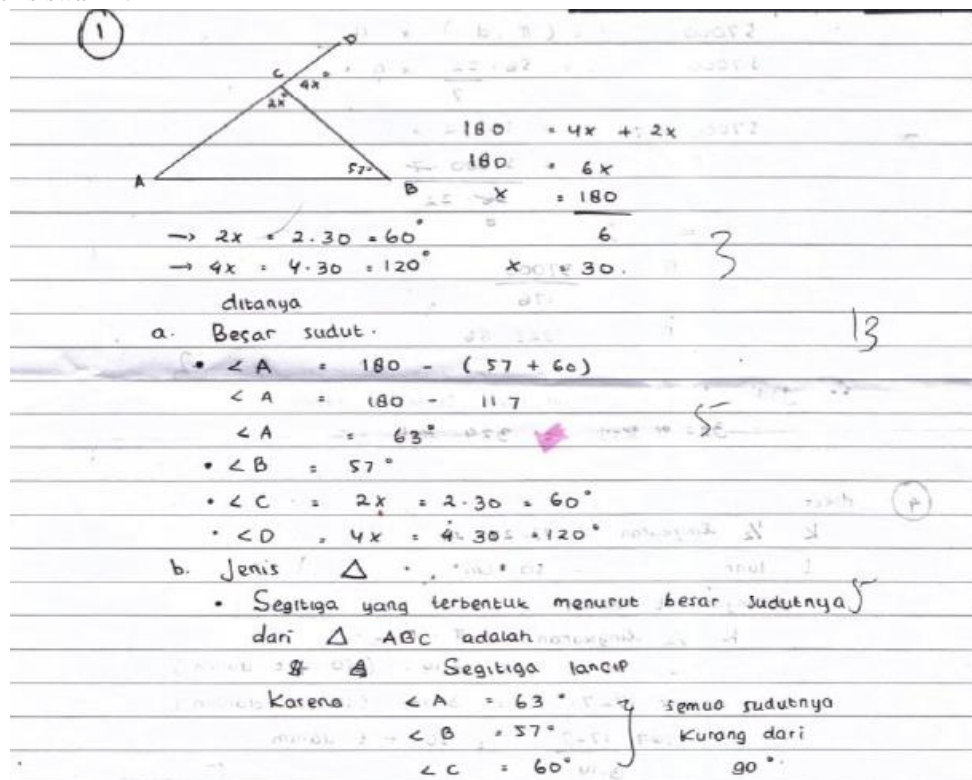 1
D
C 4x°
2x°
A 57° B
180 = 4x + 2x
180 = 6x
x = 180
6
x = 30.
→ 2x = 2.30 = 60°
→ 4x = 4.30 = 120°
3
ditanya
a. Besar sudut.
13
• ∠A = 180 - (57 + 60)
∠A = 180 - 117
∠A = 63°
5
• ∠B = 57°
• ∠C = 2x = 2.30 = 60°
• ∠D = 4x = 4.30 = 120°
b. Jenis △
• Segitiga yang terbentuk menurut besar sudutnya
5
dari △ ABC adalah
Segitiga lancip
Karena ∠A = 63° } semua sudutnya
∠B = 57° kurang dari
∠C = 60° 90°.